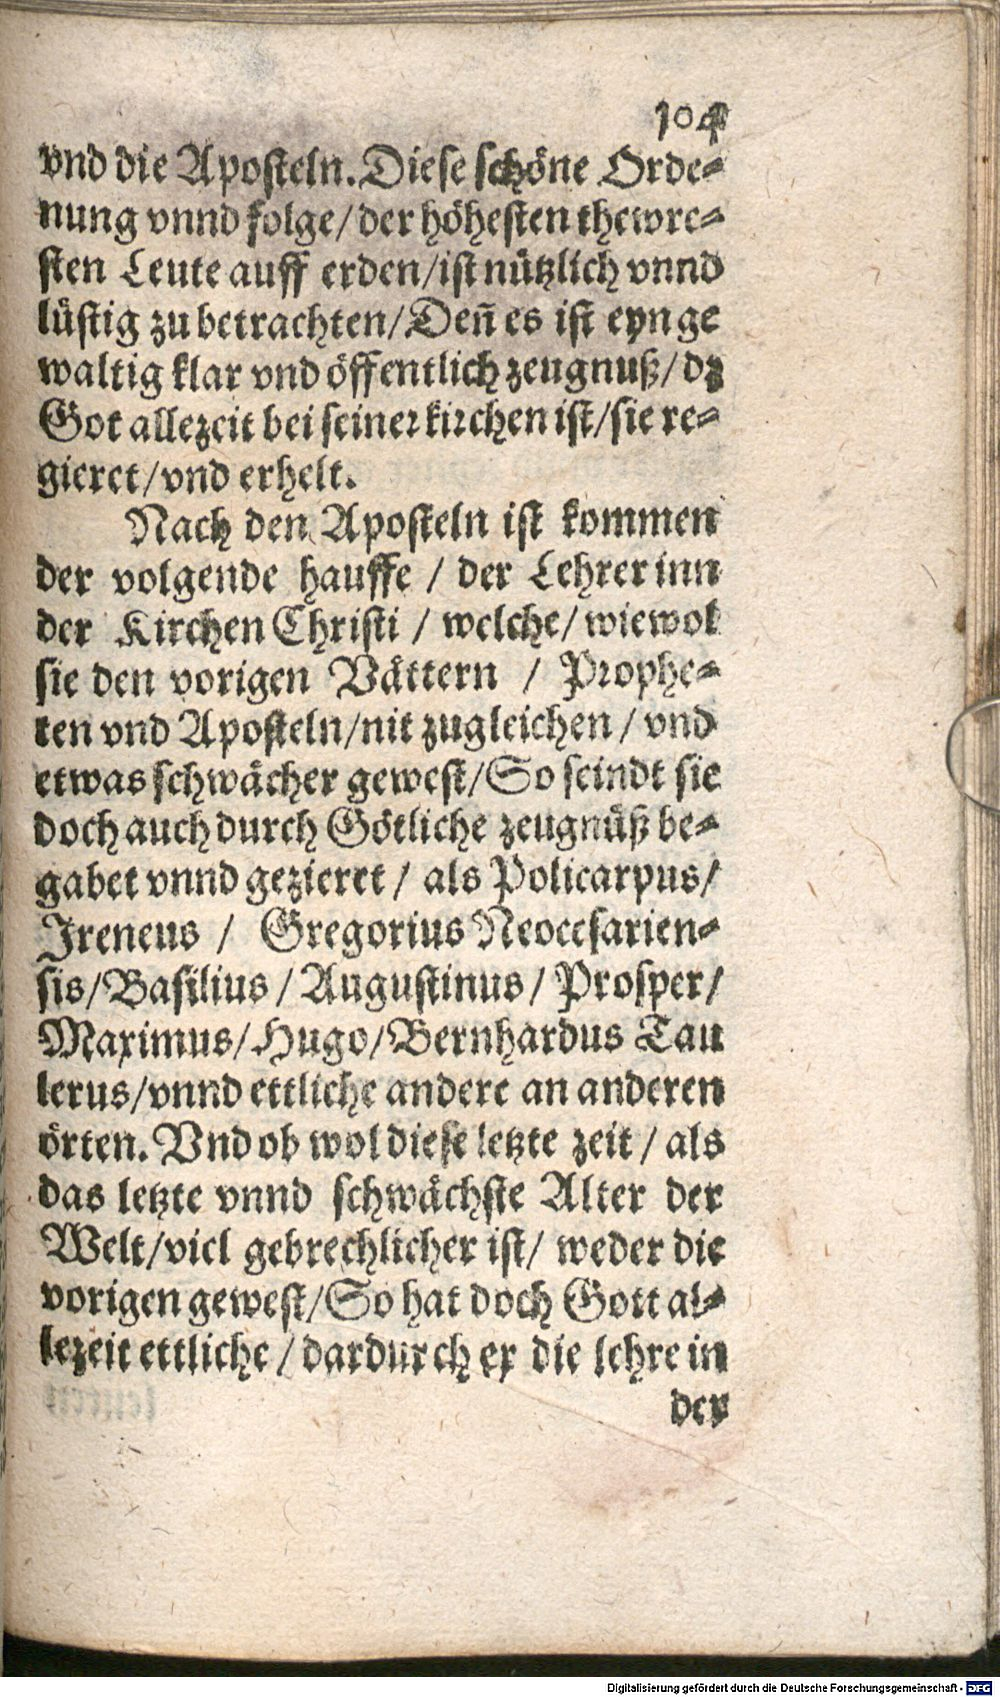 104
vnd die Aposteln. Diese schöne Orde-
nung vnnd folge/ der höhesten thewre-
sten Leute auff erden/ ist nützlich vnnd
lüstig zu betrachten/ Deñ es ist eyn ge
waltig klar vnd öffentlich zeugnuß/ dz
Got allezeit bei seiner kirchen ist/ sie re-
gieret/ vnd erhelt.
Nach den Aposteln ist kommen
der volgende hauffe / der Lehrer inn
der Kirchen Christi / welche/ wiewol
sie den vorigen Vättern / Prophe-
ten vnd Aposteln/ nit zugleichen / vnd
etwas schwächer gewest/ So seindt sie
doch auch durch Götliche zeugnüß be-
gabet vnnd gezieret / als Policarpus/
Ireneus / Gregorius Neocesarien-
sis/ Basilius / Augustinus/ Prosper/
Maximus/ Hugo/ Bernhardus Tau
lerus/ vnnd ettliche andere an anderen
örten. Vnd ob wol diese letzte zeit / als
das letzte vnnd schwächste Alter der
Welt/ viel gebrechlicher ist/ weder die
vorigen gewest/ So hat doch Gott al-
lezeit ettliche / dardurch er die lehre in
der
Digitalisierung gefördert durch die Deutsche Forschungsgemeinschaft - DFG